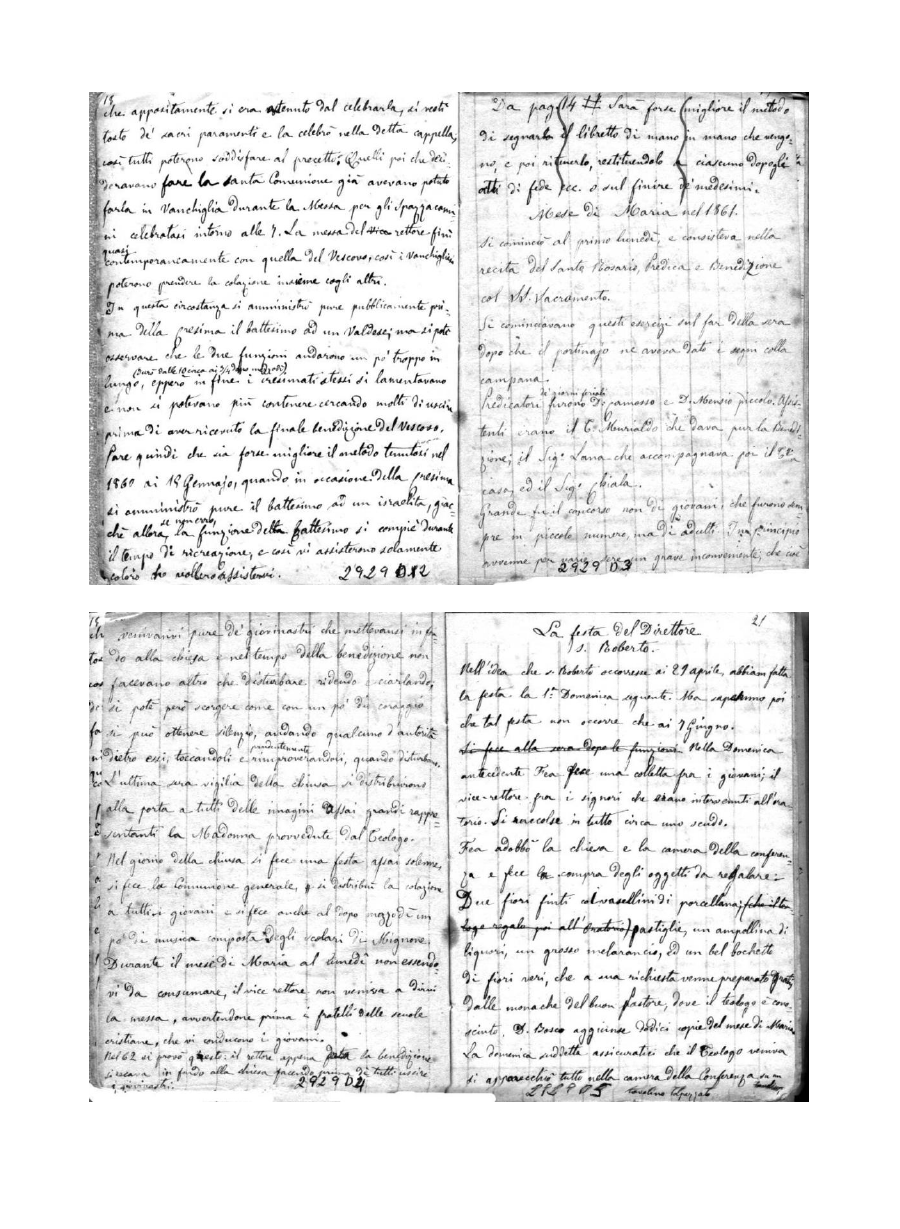 che appositamente si era astenuto dal celebrarla, si vestì
tosto de' sacri paramenti e la celebrò nella detta cappella,
così tutti poterono soddisfare al precetto. Quelli poi che desi-
deravano fare la santa Comunione già avevano potuto
farla in Vanchiglia durante la Messa per gli Spazzacam-
ni celebratasi intorno alle 7. La messa del rettore finì
quasi
contemporaneamente con quella del Vescovo, così i Vanchiglini
poterono prendere la colazione insieme cogli altri.
In questa circostanza si amministrò pure pubblicamente pri-
ma della cresima il battesimo ad un Valdese; ma si potè
osservare che le due funzioni andarono un po' troppo in
(durò dalle 10 circa ai 3/4 dopo mezzodì)
lungo, eppero in fine i cresimati stessi si lamentavano
e non si potevano più contenere cercando molti di uscire
prima di aver ricevuto la finale benedizione del Vescovo.
Pare quindi che sia forse migliore il metodo tenutosi nel
1860 ai 18 Gennajo, quando in occasione della cresima
si amministrò pure il battesimo ad un israelita, giac-
se non erro,
chè allora la funzione della battesimo si compiè durante
il tempo di ricreazione, e così vi assisterono solamente
coloro che vollero assistervi.
2929 D12
Da pag 14 # Sara forse migliore il metodo
di segnarlo il libretto di mano in mano che vengo-
no, e poi ritenerlo, restituendolo a ciascuno dopo gli
atti di fede ecc. o sul finire de' medesimi.
Mese di Maria nel 1861.
Si cominciò al primo lunedì, e consisteva nella
recita del Santo Rosario, Predica e Benedizione
col SS. Sacramento.
Si cominciavano questi esercizi sul far della sera
dopo che il portinajo ne aveva dato i segni colla
campana.
di giorni feriali
Predicatori furono D. Camosso e D. Mensio piccolo. Assis-
tenti erano il T. Murialdo che dava pur la Benedi-
zione; il Sig. Lana che accompagnava poi il T. a
casa, ed il Sig. Chiala.
Grande fu il concorso non di giovani, che furono sem
pre in piccolo numero, ma di adulti. In principio
avvenne per varie sere un grave inconveniente, che cioè
2929 D3
venivanvi pure de' giovinastri che mettevansi in fon-
do alla chiesa e nel tempo della benedizione non
facevano altro che disturbare ridendo e ciarlando,
si potè però scorgere come con un po' di coraggio
si può ottenere silenzio, andando qualcuno d'autorità
prudentemente
dietro essi, toccandoli e rimproverandoli, quando disturbano.
L'ultima sera vigilia della chiusa si distribuirono
alla porta a tutti delle imagini assai grandi rappre-
sentanti la Madonna provvedute dal Teologo.
Nel giorno della chiusa si fece una festa assai solenne,
si fece la Comunione generale, e si distribuì la colazione
a tutti i giovani e si fece anche al dopo mezzodì un
po' di musica composta degli scolari di Mignone.
Durante il mese di Maria al lunedì non essendo-
vi da consumare, il vice rettore non veniva a dirvi
la messa, avvertendone prima i fratelli delle scuole
cristiane, che vi conducono i giovani.
Nel 62 si provò questo: il rettore appena data la benedizione
si recava in fondo alla chiesa facendo prima di tutti uscire
i giovinastri.
2929 D4
21
La festa del Direttore
S. Roberto.
Nell'idea che S. Roberto occorresse ai 29 aprile, abbiam fatta
la festa la 1ª Domenica seguente. Ma sapemmo poi
che tal festa non occorre che ai 7 Giugno.
Si fece alla sera dopo le funzioni. Nella Domenica
antecedente Fea fece una colletta fra i giovani; il
vice-rettore fra i signori che erano intervenuti all'ora-
torio. Si raccolse in tutto circa uno scudo.
Fea adobbò la chiesa e la camera della conferen-
za e fece la compra degli oggetti da regalare:
Due fiori finti coi vasellini di porcellana; (che il teo-
logo regalò poi all'Oratorio) pastiglie, un ampollina di
liquori, un grosso melarancio, ed un bel bochetto
di fiori veri, che a sua richiesta venne preparato gratis
dalle monache del buon Pastore, dove il teologo è cono-
sciuto. D. Bosco aggiunse dodici copie del mese di Maria
La domenica suddetta assicuratici che il Teologo veniva
si apparecchiò tutto nella camera della Conferenza su un
2929 D5
tavolino